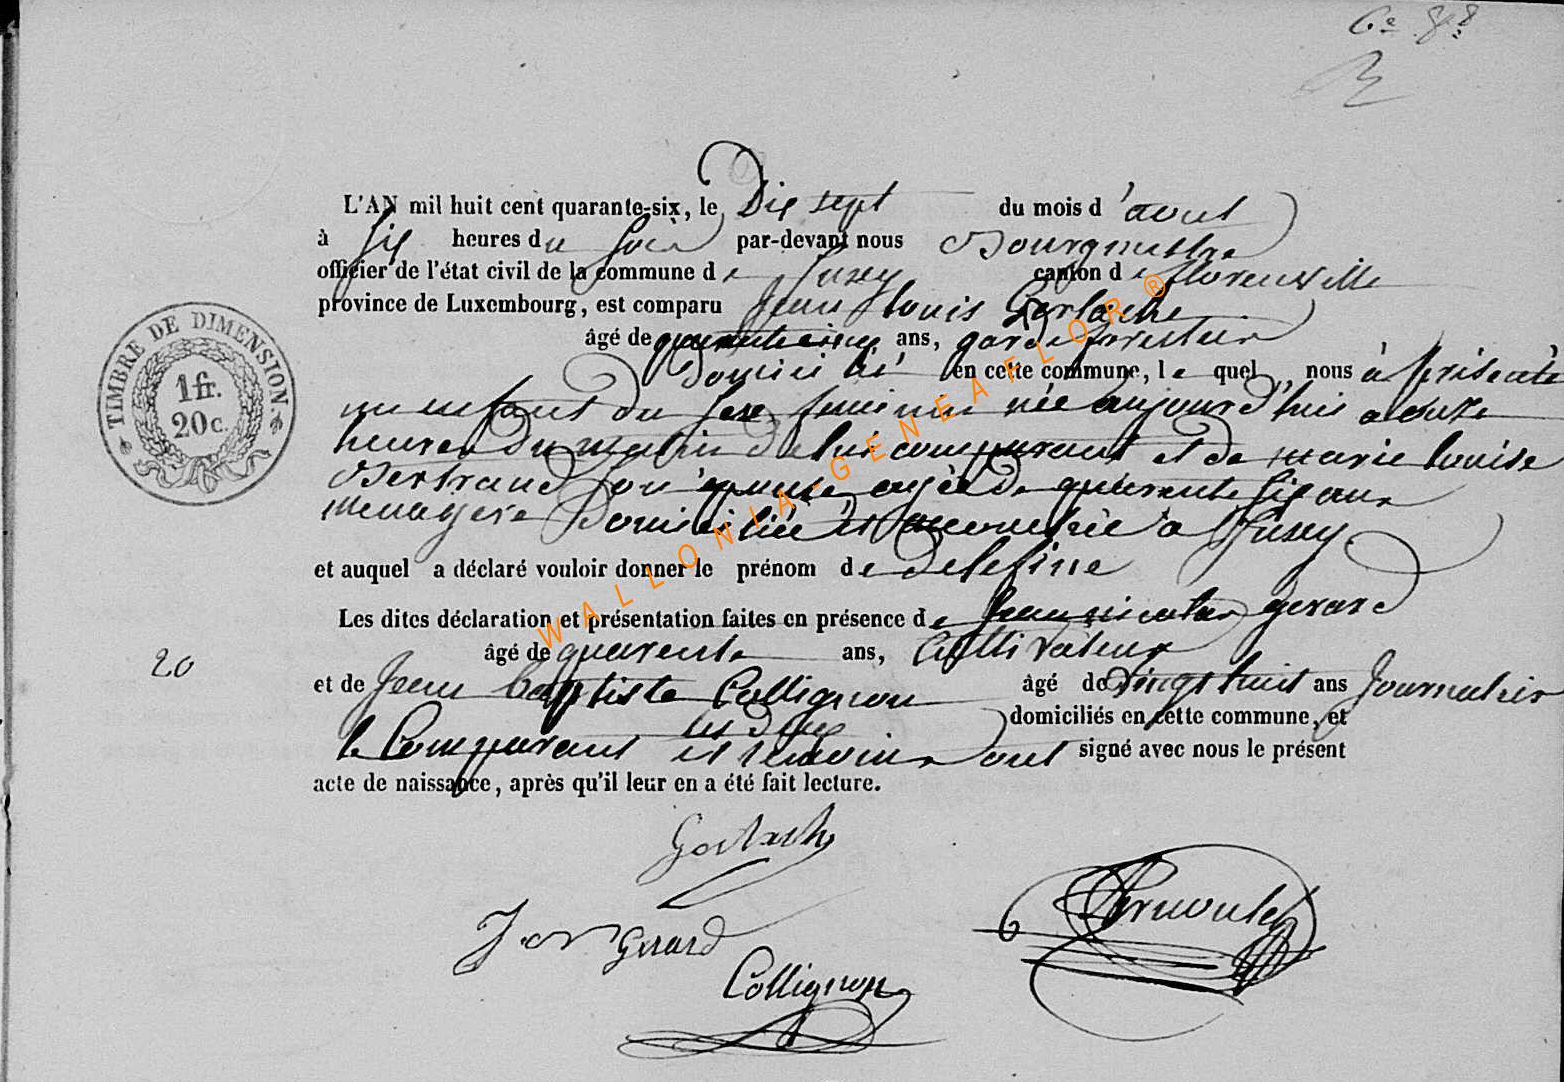 L'AN mil huit cent quarante-six, le Dix sept du mois d'aout
à six heures du soir par-devant nous Bourgmestre
officier de l'état civil de la commune de Fuxey canton de florenville
province de Luxembourg, est comparu Jean louis Gerlache
âgé de quarante cinq ans, garde forestier
Domicilié en cette commune, le quel nous à présenté
un enfant du sexe feminin née aujourd'huis a onze
heures du matin de lui comparant et de marie louise
Bertrand son épouse agée de quarente six ans
menagère Domiciliée et accouchée à Fuxey
et auquel a déclaré vouloir donner le prénom de delefine
Les dites déclaration et présentation faites en présence de Jean nicolas gerard
âgé de quarente ans, Cultivateur
20
et de Jean baptiste Collignon âgé de vingt huit ans Journalier
domiciliés en cette commune, et
le Comparant et les deux temoins ont signé avec nous le présent
acte de naissance, après qu'il leur en a été fait lecture.
Gerlache
J. n Gerard
Collignon
TIMBRE DE DIMENSION.
1 fr.
20 c.
WALLONIA-GENEAFLOR ®